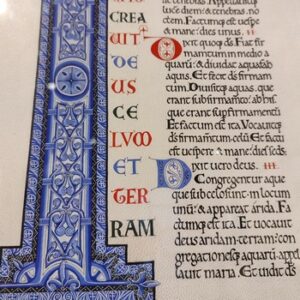 CREA
UIT
DE
US
CE
LUM
ET
TER
RAM
lucē diem: & tenebras no
ctem. Factumq; est uespe
& mane: dies unus. ii.
Dixit quoq; ds. Fiat fir
mamentum in medio a
quarū: & diuidat aquas ab
aquis. Et fecit ds firmam
tum. Diuisitq; aquas, que
erant sub firmamento: ab his
que erant sup firmamentū
Et factum est ita. Vocauitq;
ds firmamentum celū: Et factū
est uespere & mane: dies secds.
Dixit uero deus. iii.
Congregentur aque
que sub celo sunt. in locum
unū: & appareat arida. Fa
ctumq; est ita. Et uocauit
deus aridam terram: con
gregationesq; aquarū appel
lauit maria. Et uidit ds